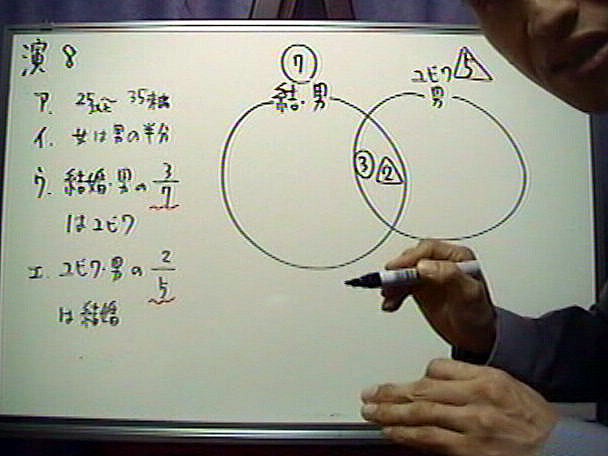 演8
ア. 25以上~35未満
イ. 女は男の半分
ウ. 結婚・男の 3/7
はユビワ
エ. ユビワ・男の 2/5
は結婚
7
結・男
ユビワ 5
男
3 2